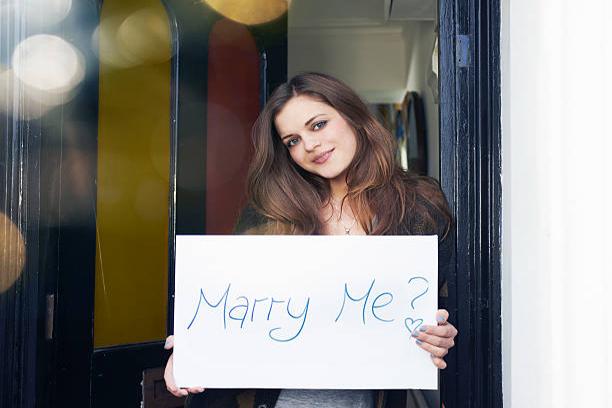 Marry Me?